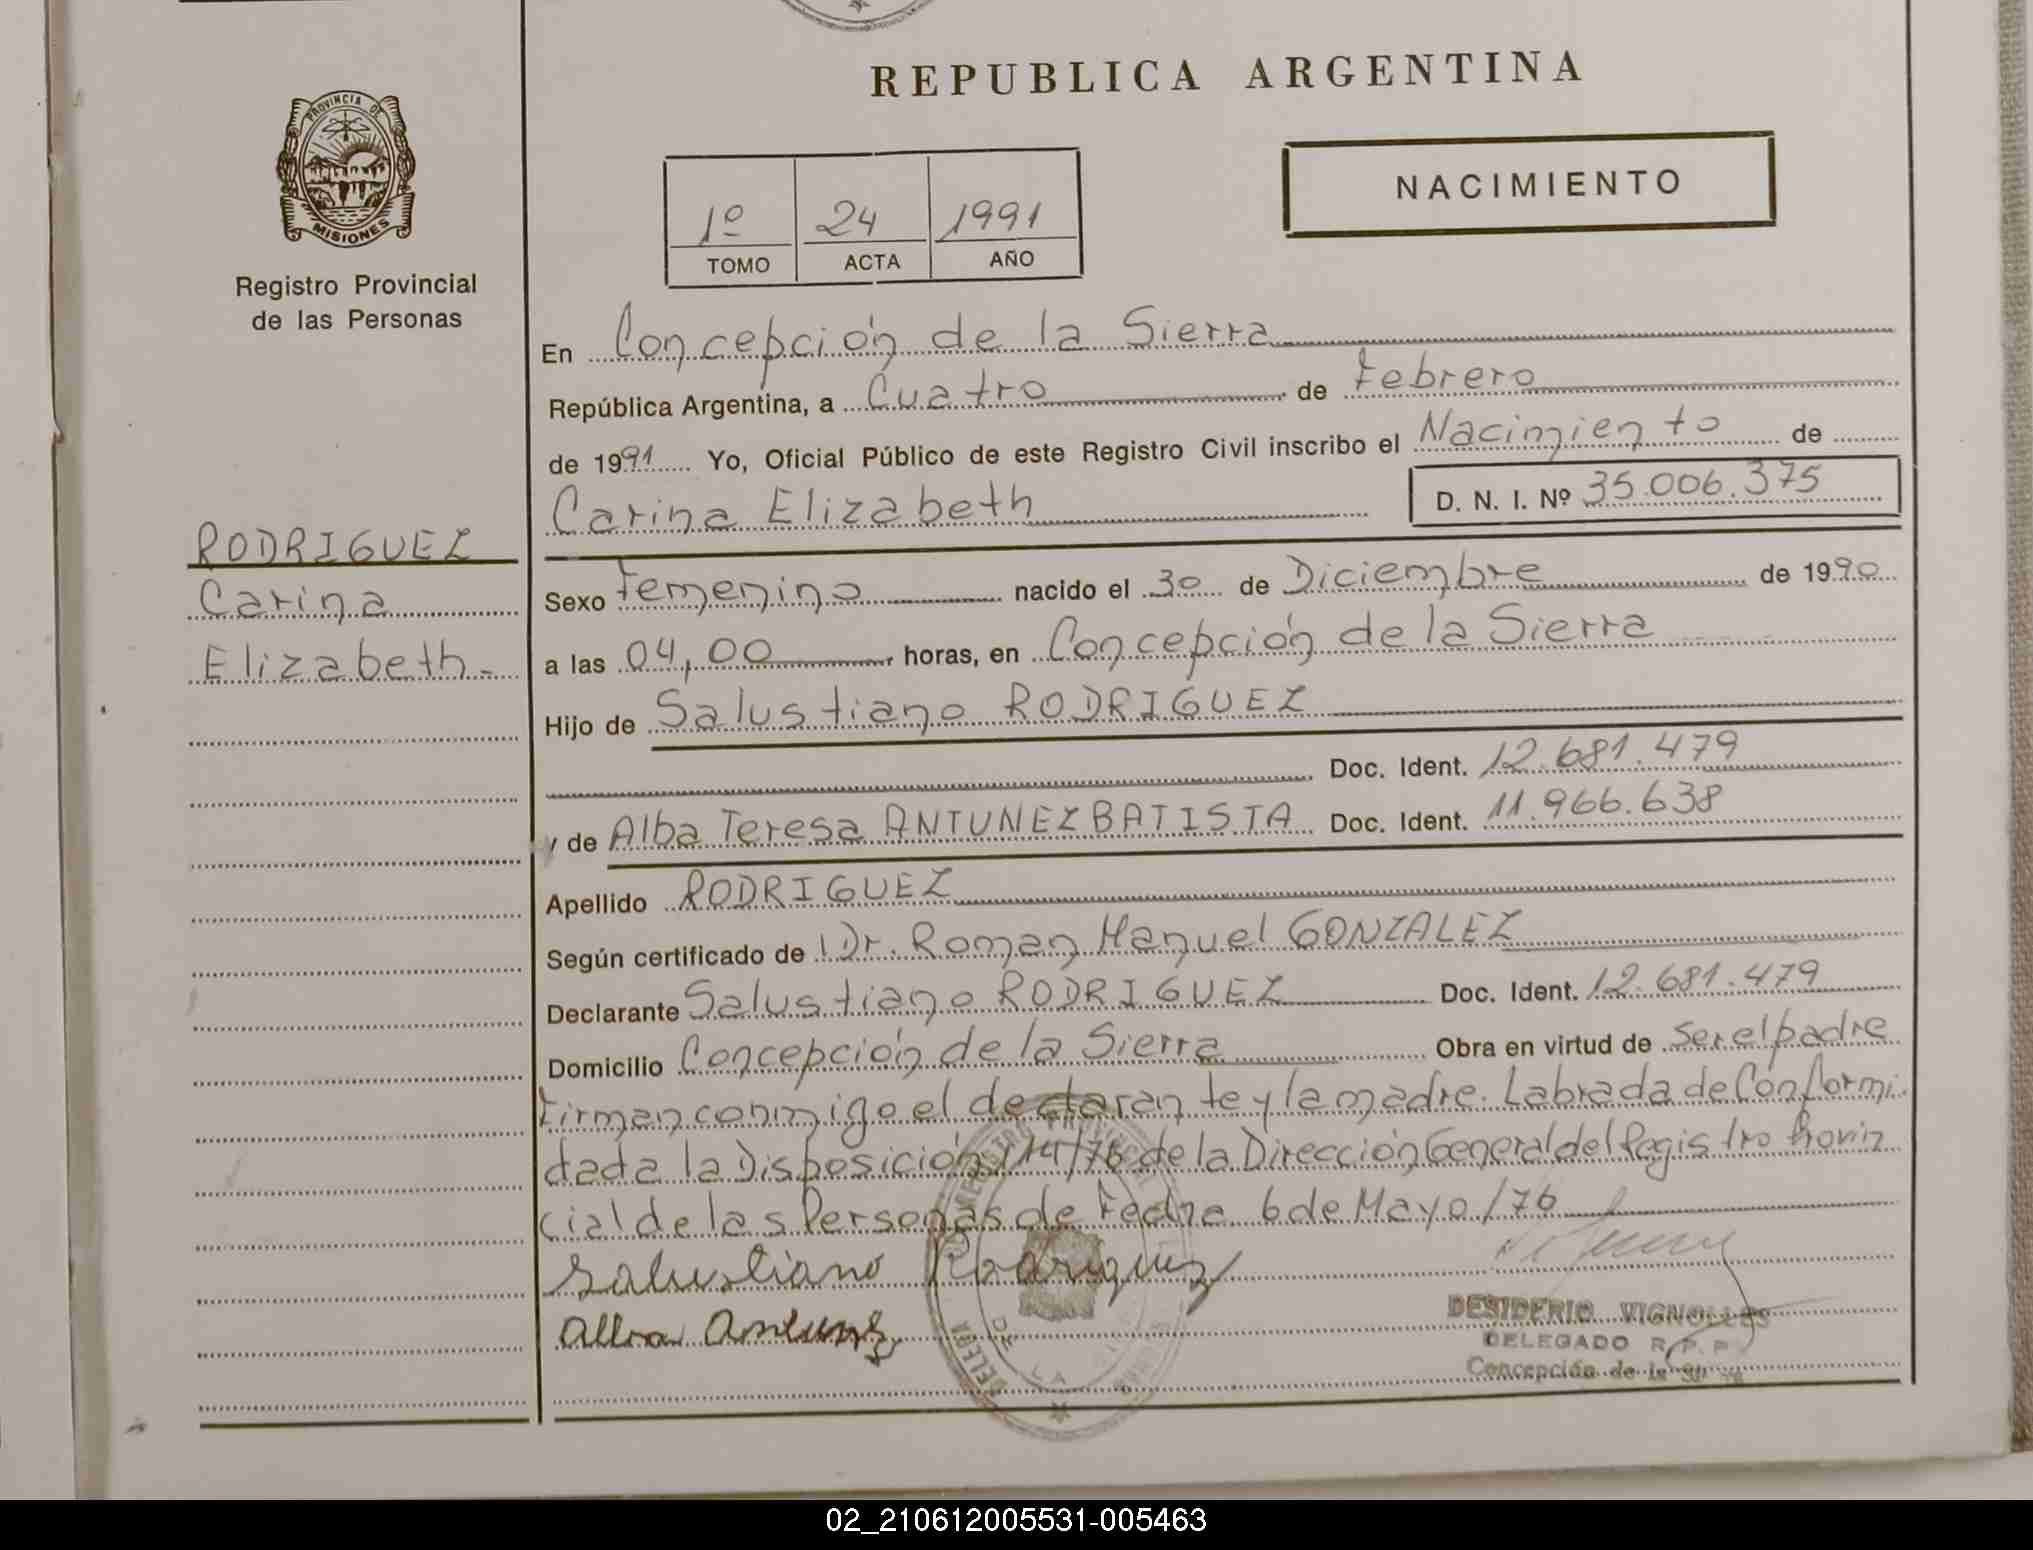 REPUBLICA ARGENTINA
PROVINCIA DE
MISIONES
Registro Provincial
de las Personas
NACIMIENTO
1º 24 1991
TOMO ACTA AÑO
En Concepción de la Sierra
República Argentina, a Cuatro de Febrero
de 1991 Yo, Oficial Público de este Registro Civil inscribo el Nacimiento de
Carina Elizabeth D. N. I. Nº 35.006.375
RODRIGUEZ
Carina
Elizabeth.-
Sexo Femenino nacido el 30 de Diciembre de 1990
a las 04,00 horas, en Concepción de la Sierra
Hijo de Salustiano RODRIGUEZ
Doc. Ident. 12.681.479
y de Alba Teresa ANTUNEZ BATISTA Doc. Ident. 11.966.638
Apellido RODRIGUEZ
Según certificado de Dr. Roman Manuel GONZALEZ
Declarante Salustiano RODRIGUEZ Doc. Ident. 12.681.479
Domicilio Concepción de la Sierra Obra en virtud de ser el padre
Firman conmigo el declarante y la madre. Labrada de Conformi
dad a la Disposición /76 de la Dirección General del Registro Provin
cial de las Personas de Fecha 6 de Mayo/76
Salustiano Rodriguez
Alba Antunez
DESIDERIO VIGNOLLES
DELEGADO R. P. P.
Concepción de la
DE LA
02_210612005531-005463